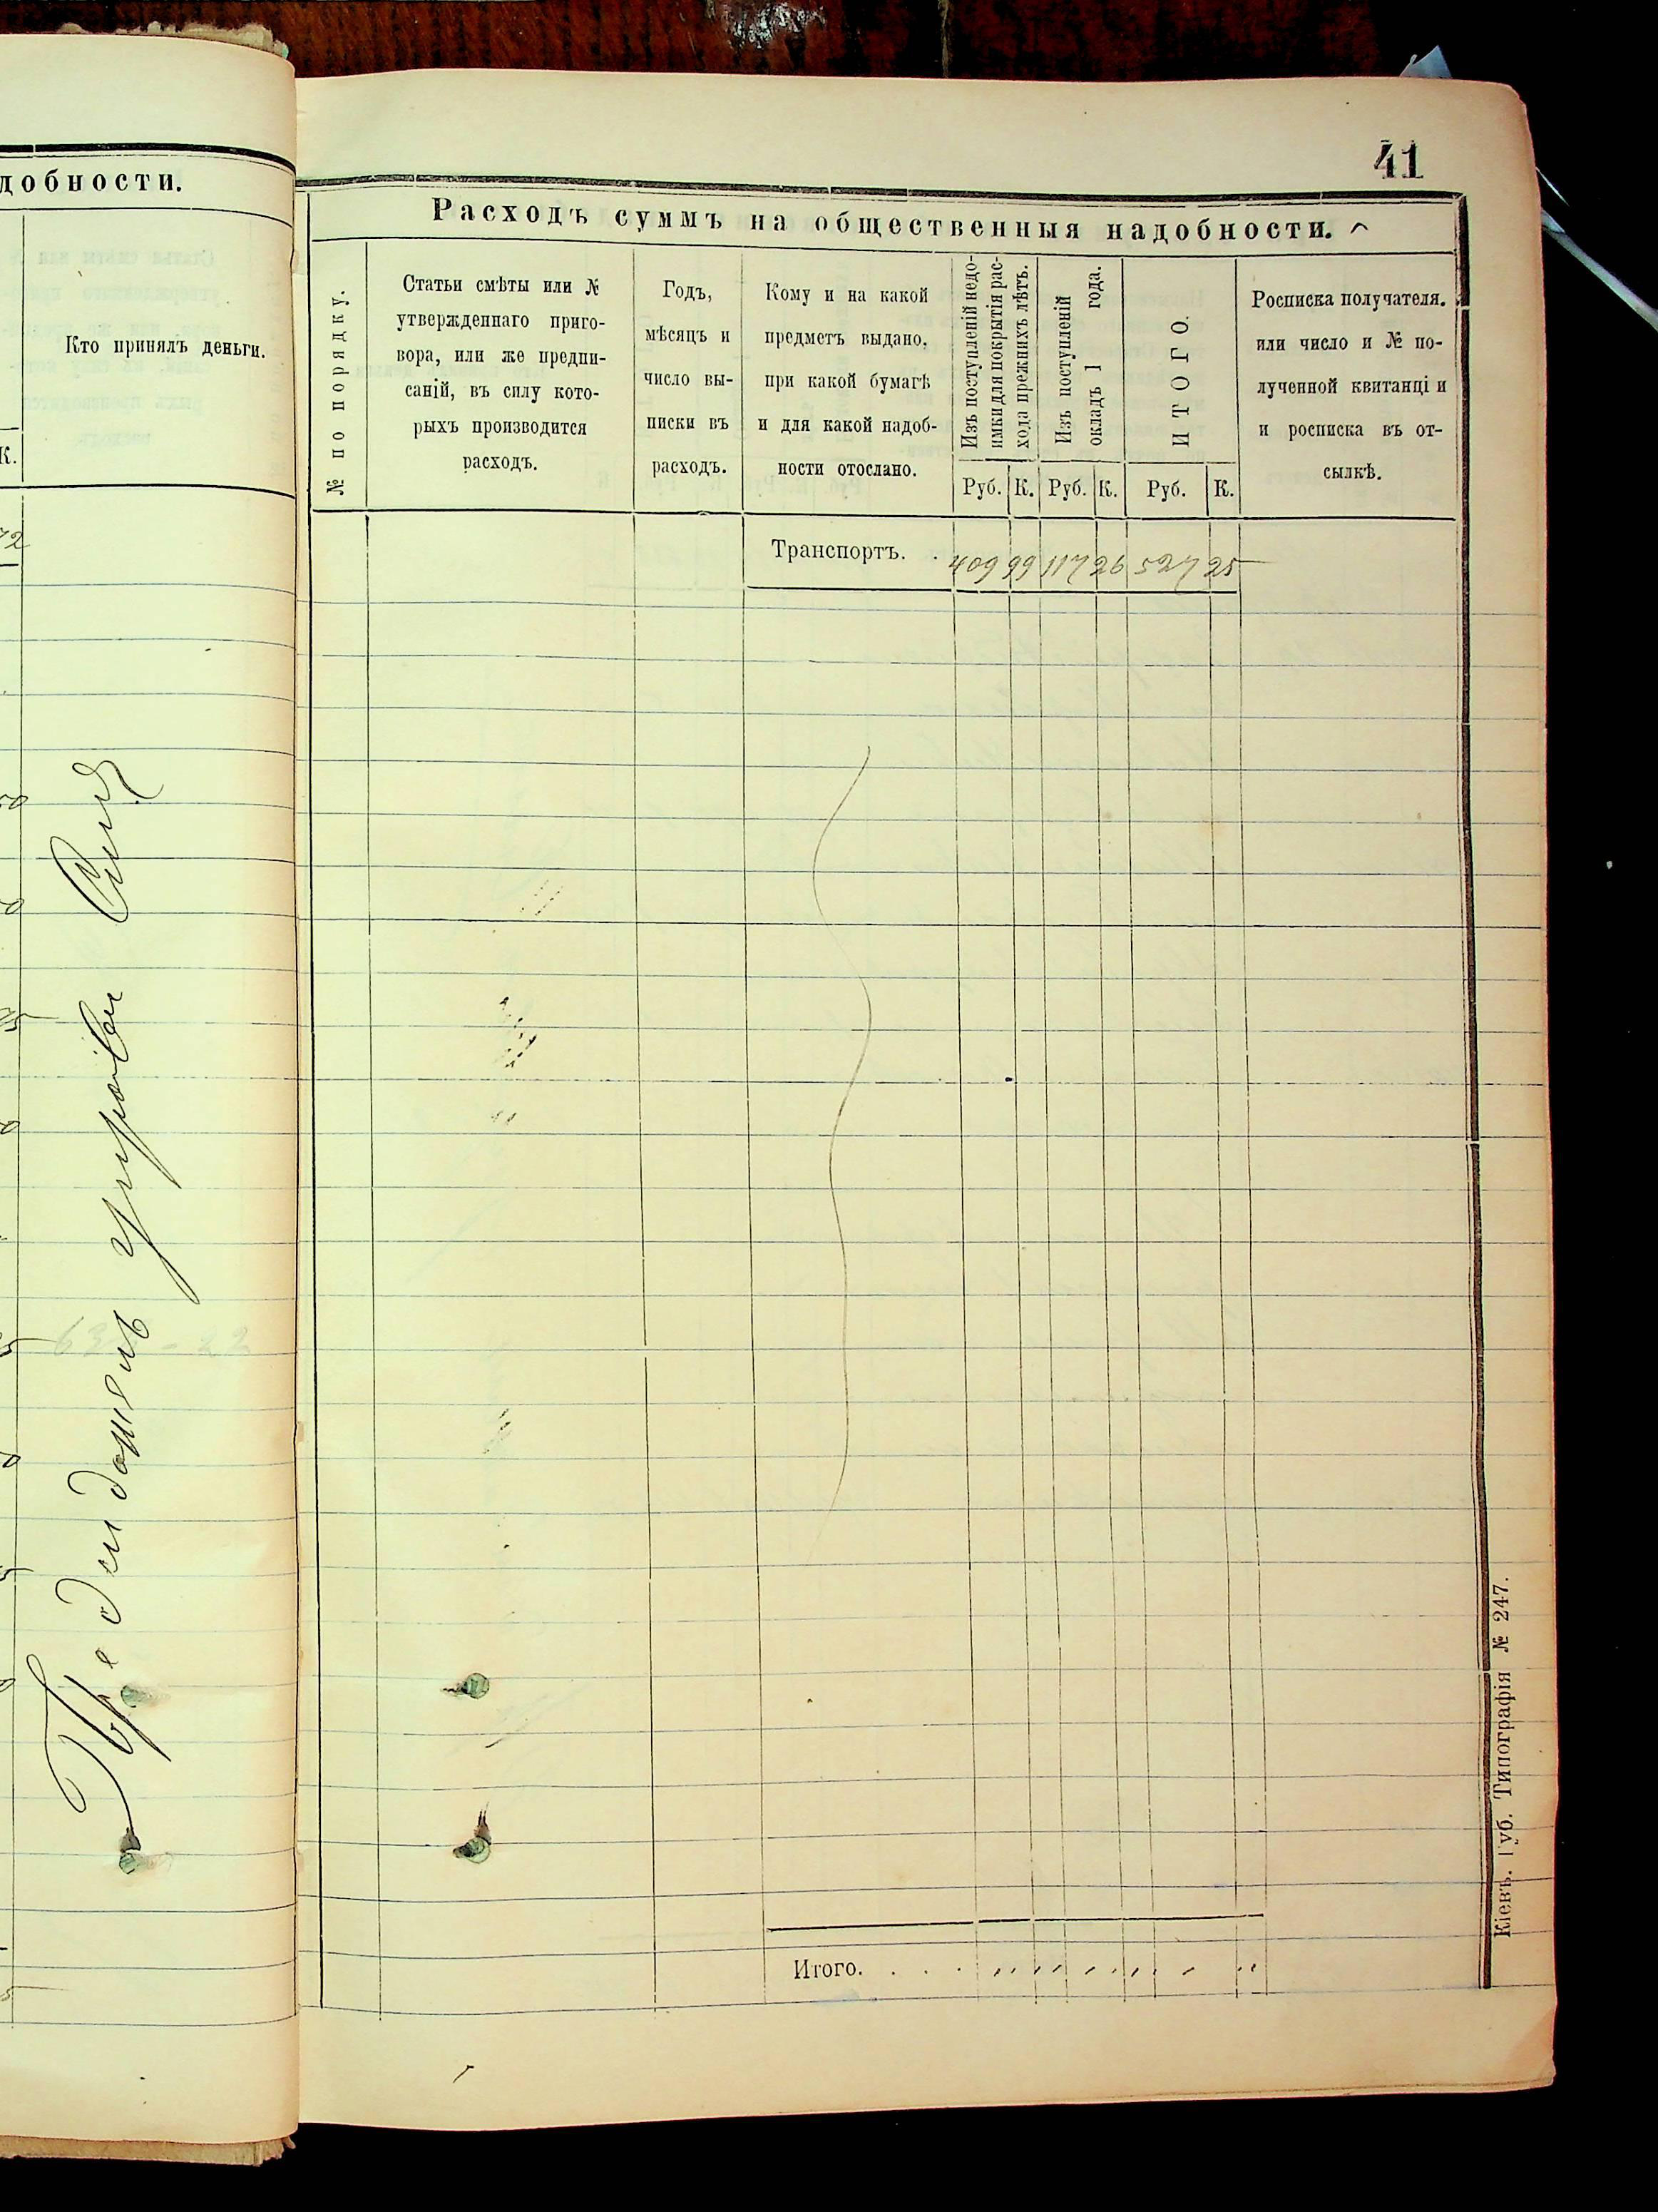 добности.
Кто принялъ деньги.
К.
72
41
Расходъ суммъ на общественныя надобности.
№ по порядку.
Статьи смѣты или №
утвержденнаго приго-
вора, или же предпи-
саній, въ силу кото-
рыхъ производится
расходъ.
Годъ,
мѣсяцъ и
число вы-
писки въ
расходъ.
Кому и на какой
предметъ выдано,
при какой бумагѣ
и для какой надоб-
ности отослано.
Изъ поступленій недо-
имки для покрытія рас-
хода прежнихъ лѣтъ.
Изъ поступленій
окладъ 1 года.
ИТОГО.
Росписка получателя.
или число и № по-
лученной квитанціи
и росписка въ от-
сылкѣ.
Руб. К. Руб. К. Руб. К.
Транспортъ. . 409 99 117 26 527 25
Итого. . . .
Кіевъ. Губ. Типографія № 247.